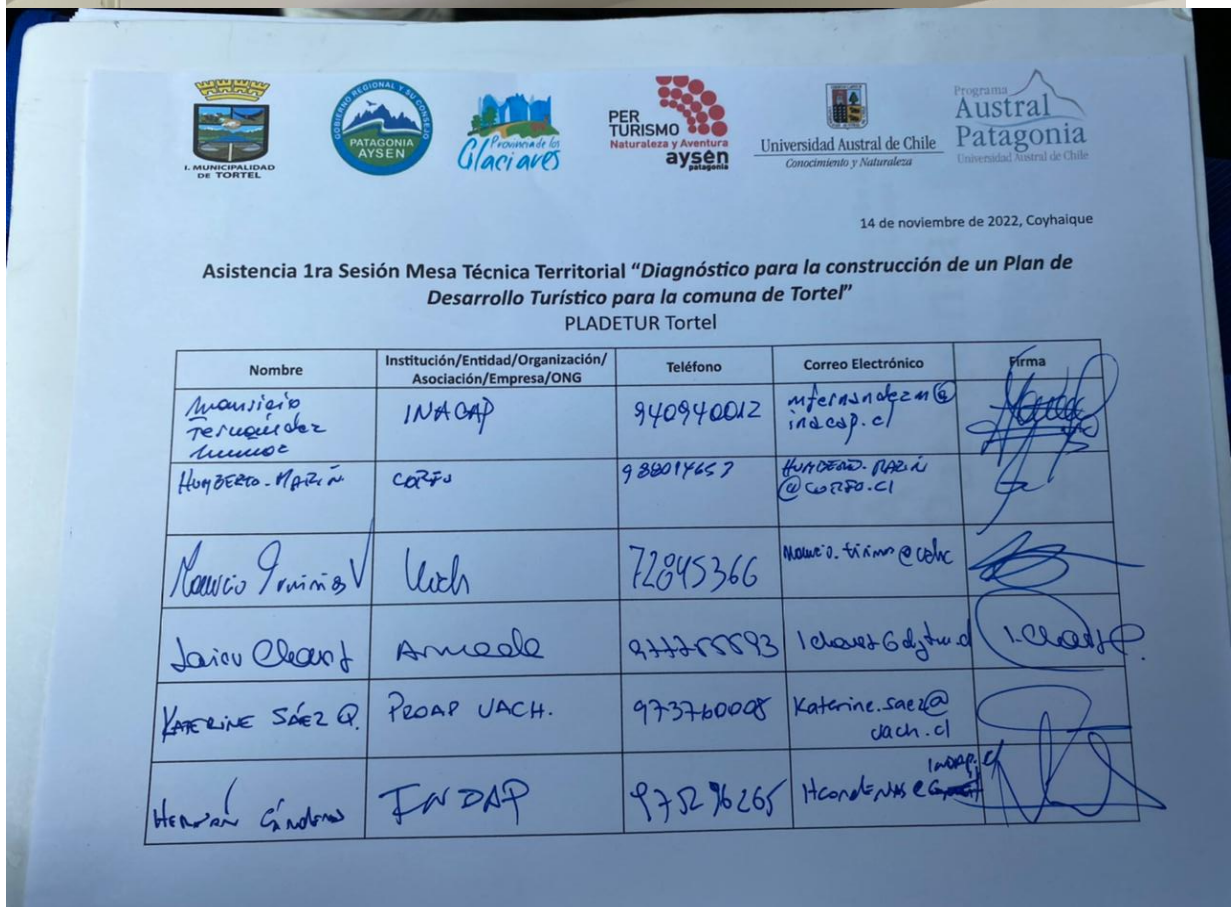 I. MUNICIPALIDAD
DE TORTEL
GOBIERNO REGIONAL Y SU CONSEJO
PATAGONIA
AYSÉN
Provincia de los
Glaciares
PER
TURISMO
Naturaleza y Aventura
aysén
patagonia
Universidad Austral de Chile
Conocimiento y Naturaleza
Programa
Austral
Patagonia
Universidad Austral de Chile
14 de noviembre de 2022, Coyhaique
Asistencia 1ra Sesión Mesa Técnica Territorial "Diagnóstico para la construcción de un Plan de
Desarrollo Turístico para la comuna de Tortel"
PLADETUR Tortel
Nombre
Institución/Entidad/Organización/
Asociación/Empresa/ONG
Teléfono
Correo Electrónico
Firma
INACAP
940940012
mfernandezm@
inacap.cl
HUMBERTO. MARÍN
CORFO
HUMBERTO. MARIN
@CORFO.Cl
72845366
Armada
KATERINE SÁEZ Q.
PROAP UACH.
973760008
Katerine.saez@
uach.cl
HERNÁN Cárdenas
INDAP
975296265
INDAP.cl